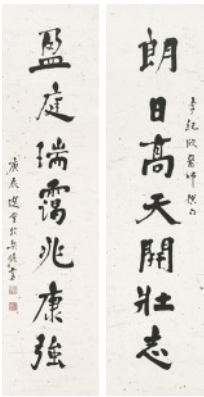 朗日高天開壯志
盈庭瑞靄兆康強